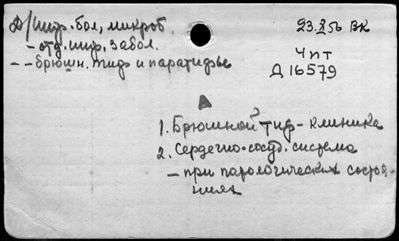 Д/инф. бол, микроб.
- отд. инф. забол.
- - брюшн. тиф и паратифы
23.X 56 ВК
Чпт
Д16579
1. Брюшной тиф - клиника
2. Сердечно-сосуд. система
- при патологических состоя-
ниях